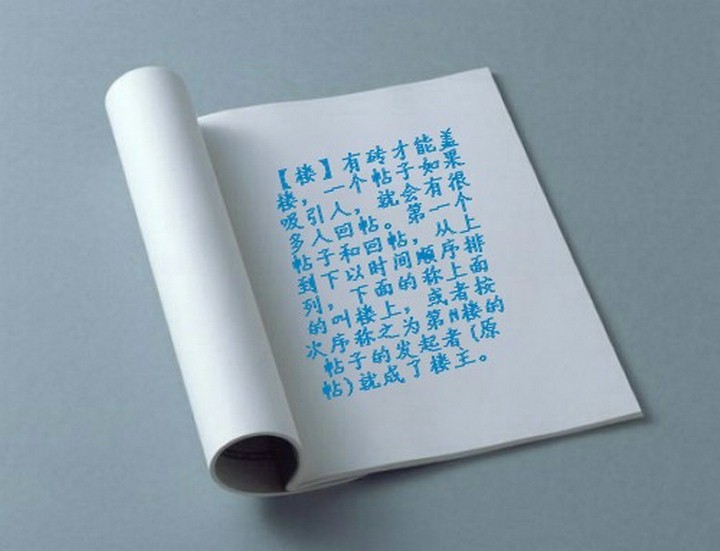 【楼】有砖才能盖
楼，一个帖子如果
吸引人，就会有很
多人回帖。第一个
帖子和回帖，从上
到下以时间顺序排
列，下面的称上面
的叫楼上，或者按
次序称之为第N楼的
帖子的发起者(原
帖)就成了楼王。